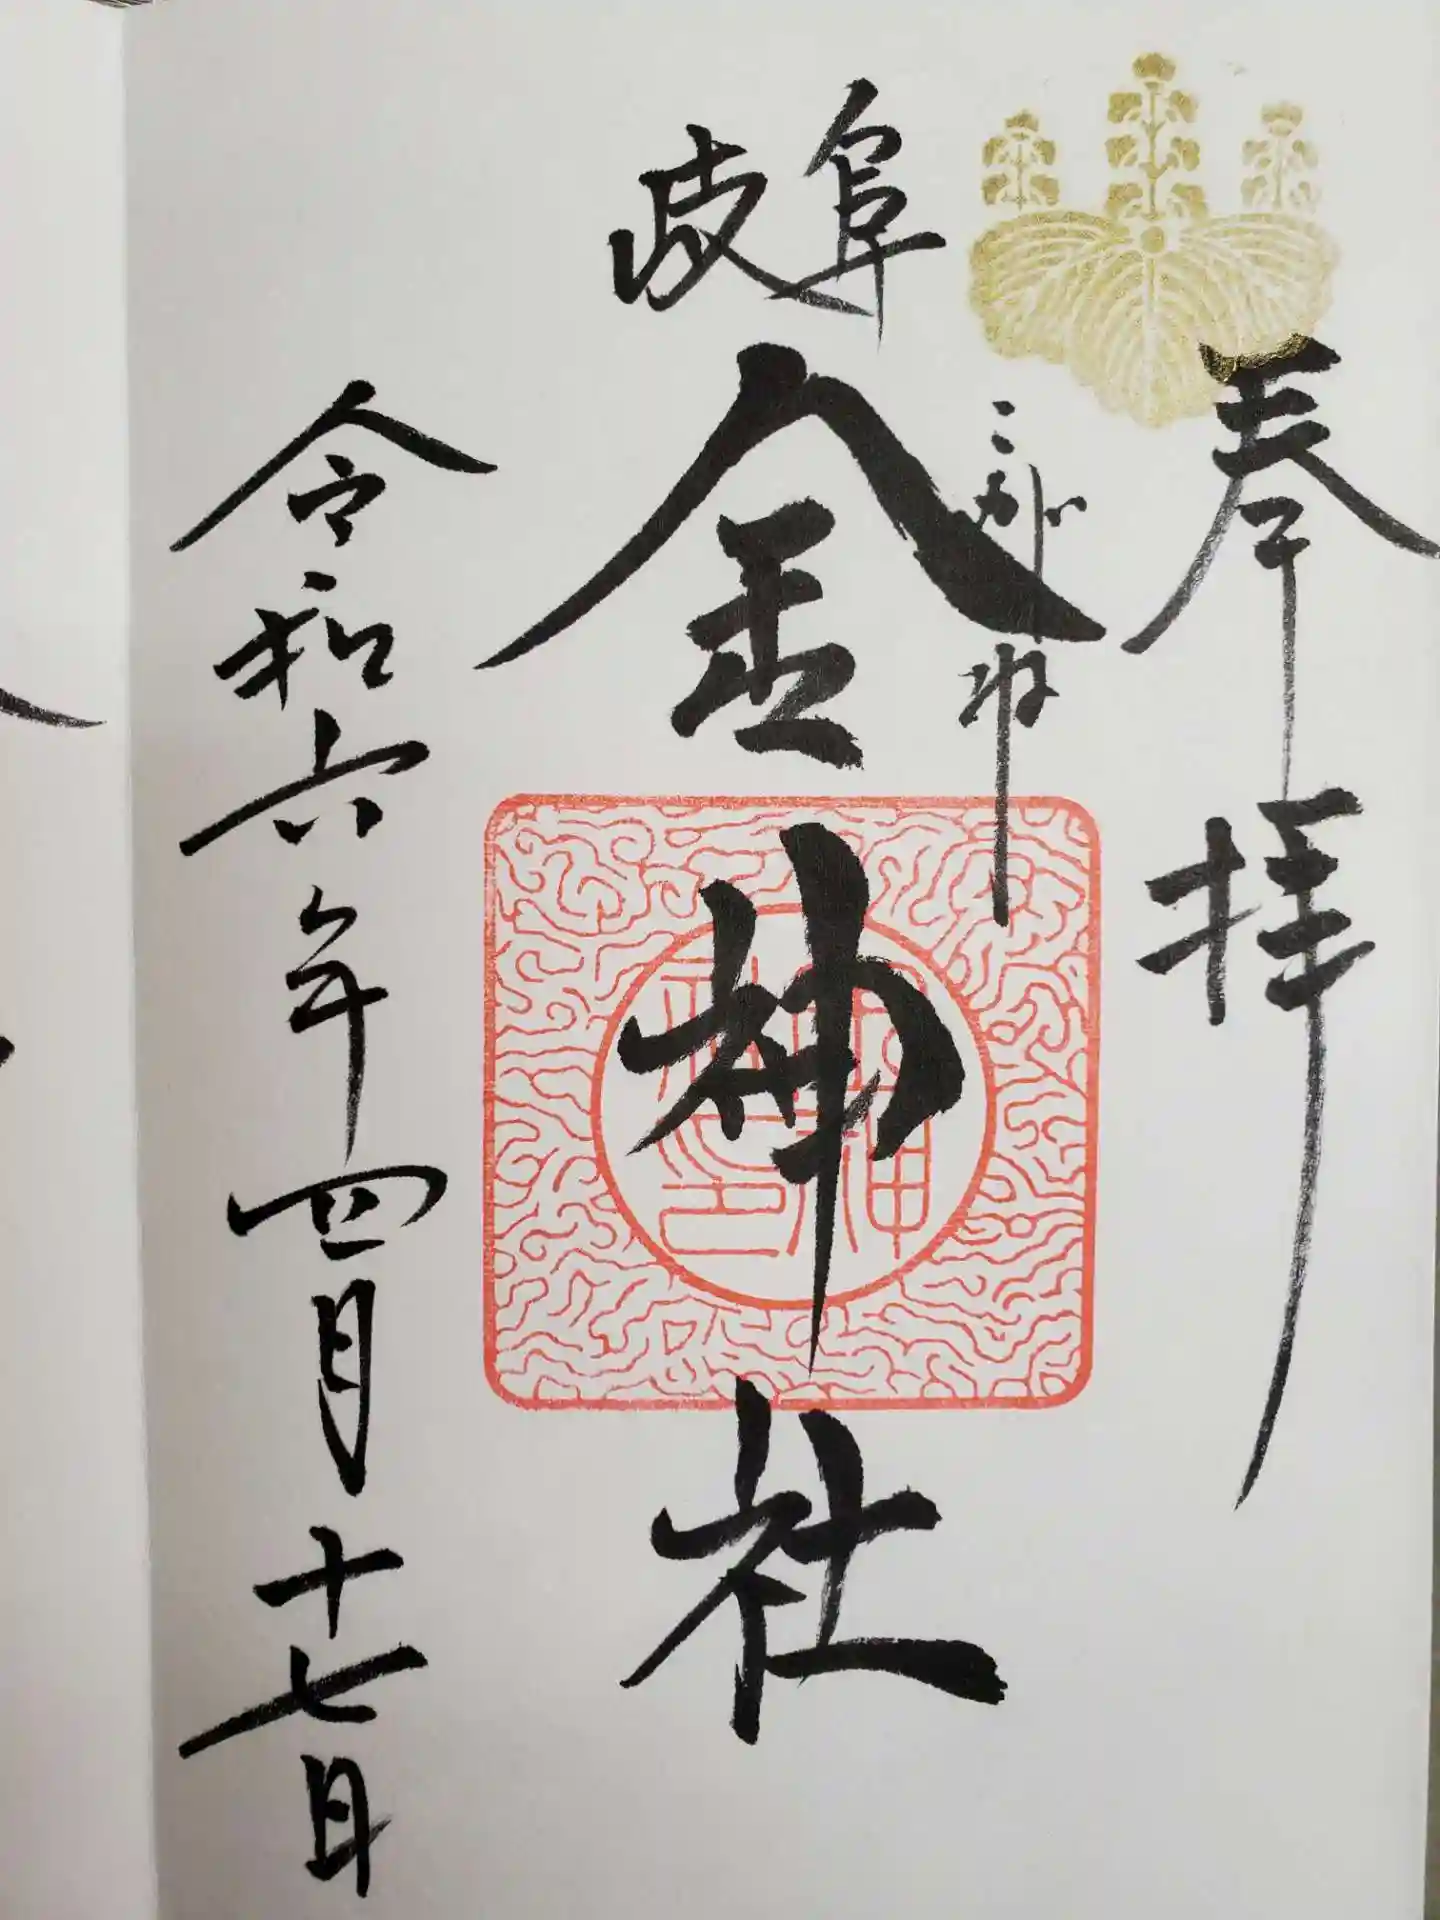 奉拝
こがね
岐阜
金神社
令和六年四月十七日